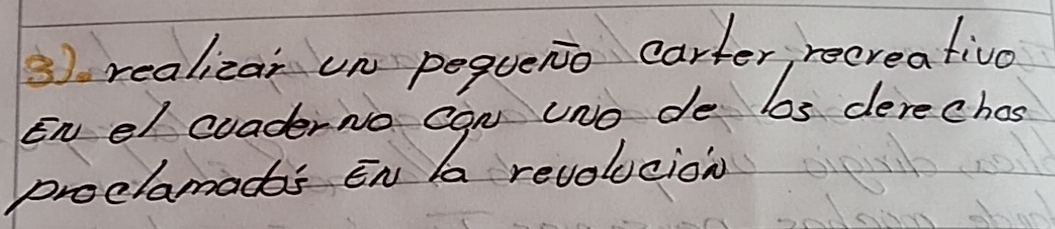 3). realizar un pequeño carter, recreativo
En el cuaderno con uno de los derechos
proclamados En la revolución